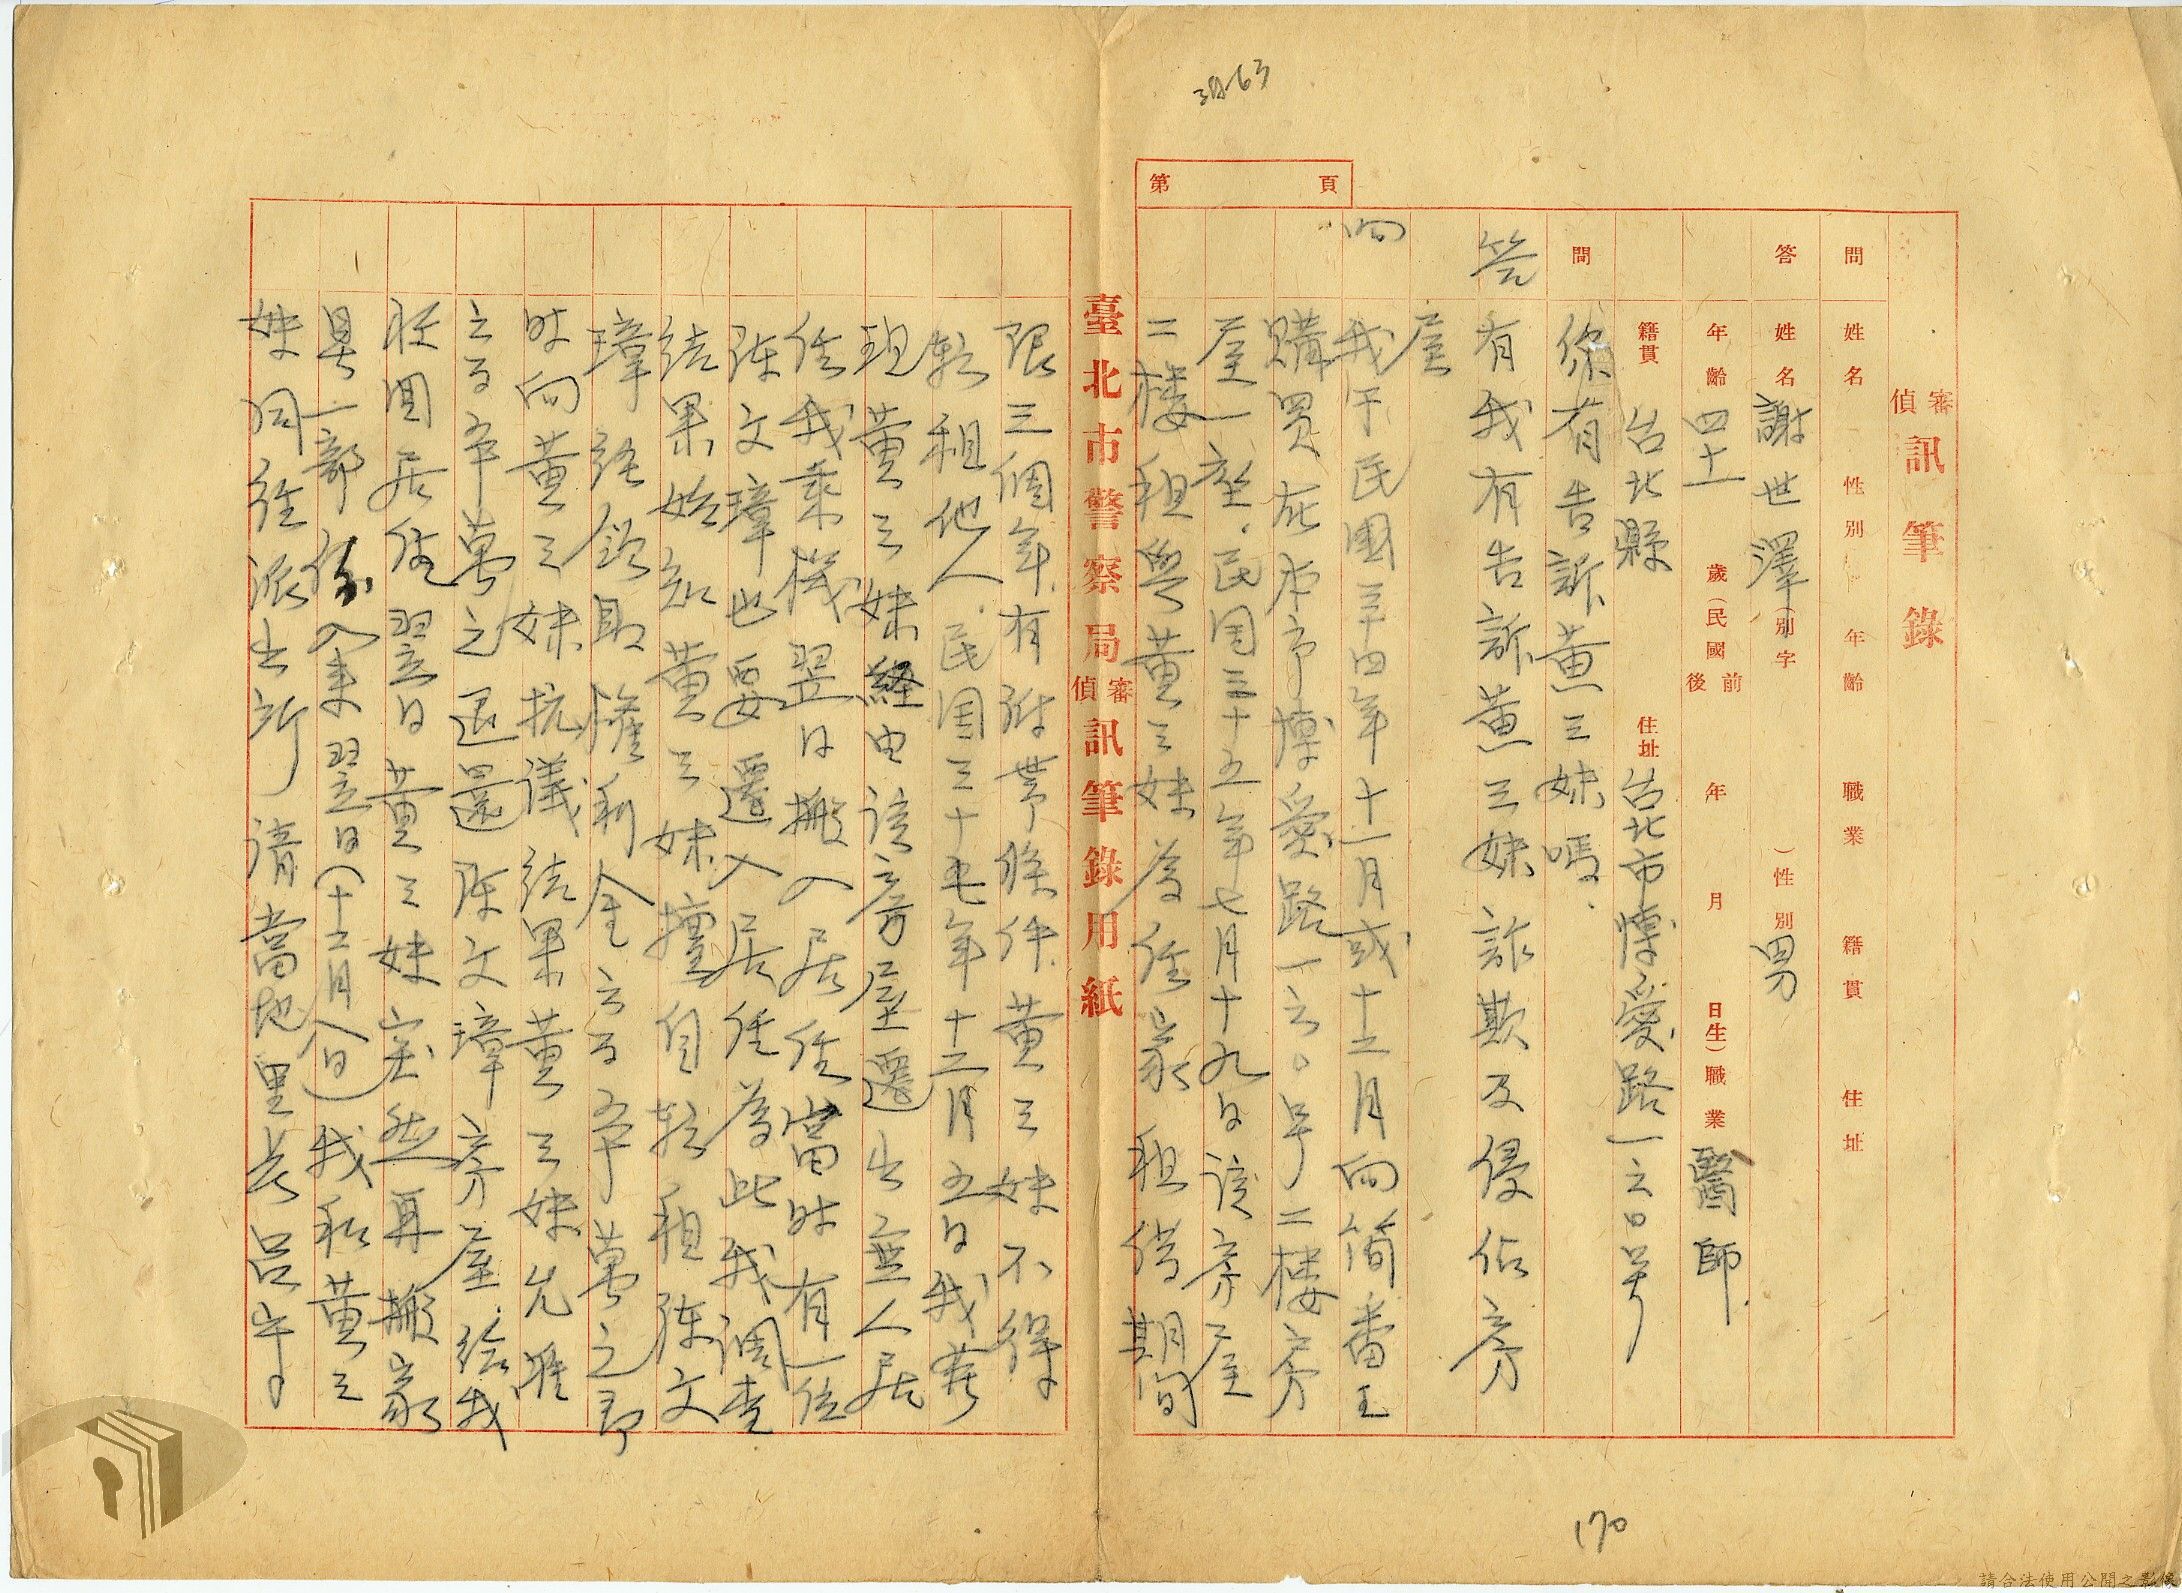 3863
第 頁
審偵訊筆錄
問 姓名 性別 年齡 職業 籍貫 住址
答 姓名 謝世澤 (別字 ) 性別 男
年齡 四十一 歲(民國前後 年 月 日生) 職業 醫師
籍貫 台北縣 住址 台北市博愛路一六〇號
問 你有告訴黃三妹嗎.
答 有我有告訴黃三妹詐欺及侵佔房
屋
我于民國三十四年十一月或十二月向簡番王
購買在本市博愛路一六〇号二樓房
屋一座.民國三十五年七月十九日該房屋
二樓租與黃三妹為住家租借期間
臺北市警察局審偵訊筆錄用紙
限三個年.有附帶條件.黃三妹不得
轉租他人.民國三十七年十二月五日我
現黃三妹経由該房屋遷出無人居
住我乘機翌日搬入居住當時有一位
陳文璋也要遷入居住為此我調查
結果始知黃三妹擅自轉租陳文
璋 領取權利金六百五十萬之
時向黃三妹抗議結果黃三妹允准
六百五十萬之退還陳文璋房屋給我
收回居住翌日黃三妹忽然再搬家
具一部份入來翌日(十二月八日)我和黃三
妹同往派出所請當地里長呂
170
請合法使用公開之影像